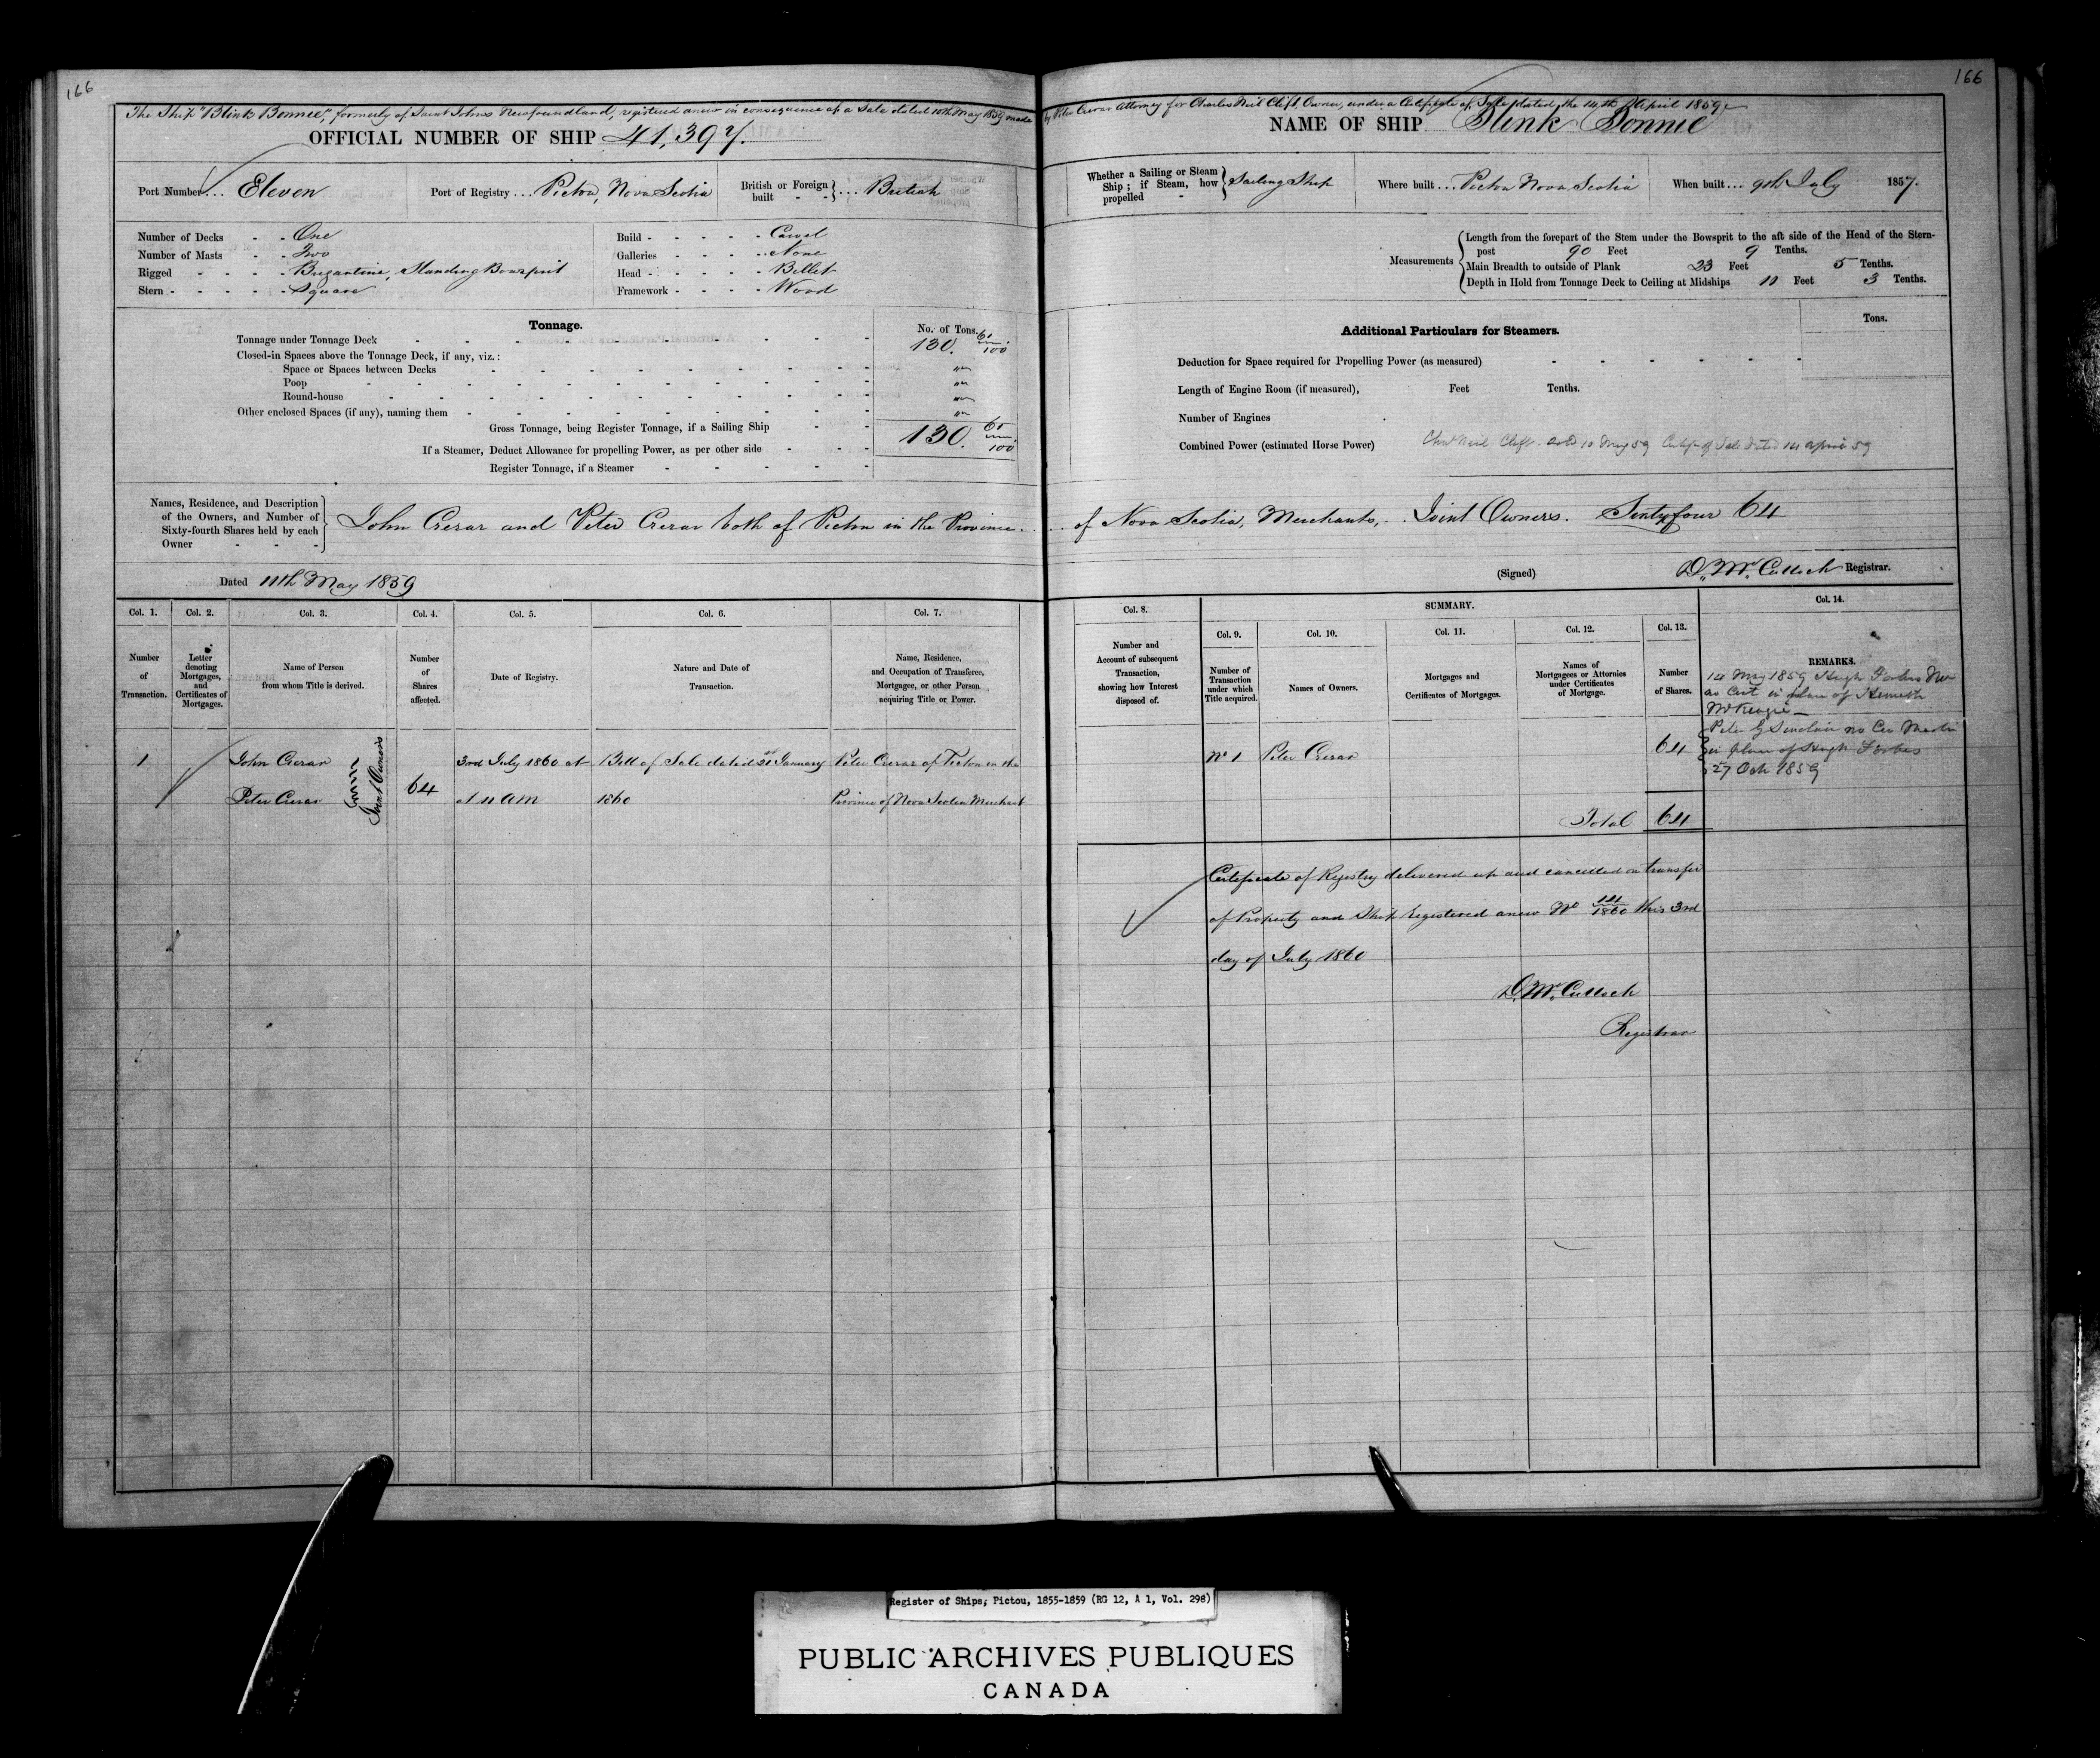 166
The Ship "Blink Bonnie", formerly of Saint Johns Newfoundland, registered anew in consequence of a Sale dated 10th May 1859 made
OFFICIAL NUMBER OF SHIP 41,397.
Port Number ... Eleven
Port of Registry ... Pictou, Nova Scotia
British or Foreign built - - } ... British
Number of Decks - - One
Number of Masts - - Two
Rigged - - - - Brigantine, Standing Bowsprit
Stern - - - - - Square
Build - - - - - Carvel
Galleries - - - - None
Head - - - - - Billet
Framework - - - - Wood
Tonnage.
No. of Tons.
Tonnage under Tonnage Deck 130. 61/100
Closed-in Spaces above the Tonnage Deck, if any, viz.:
Space or Spaces between Decks "
Poop "
Round-house "
Other enclosed Spaces (if any), naming them "
Gross Tonnage, being Register Tonnage, if a Sailing Ship 130. 61/100
If a Steamer, Deduct Allowance for propelling Power, as per other side
Register Tonnage, if a Steamer
Names, Residence, and Description
of the Owners, and Number of
Sixty-fourth Shares held by each
Owner - - -
John Crerar and Peter Crerar both of Pictou in the Province
Dated 11th May 1859
Col. 1.
Number
of
Transaction.
Col. 2.
Letter
denoting
Mortgages,
and
Certificates of
Mortgages.
Col. 3.
Name of Person
from whom Title is derived.
Col. 4.
Number
of
Shares
affected.
Col. 5.
Date of Registry.
Col. 6.
Nature and Date of
Transaction.
Col. 7.
Name, Residence,
and Occupation of Transferee,
Mortgagee, or other Person
acquiring Title or Power.
1
John Crerar
Peter Crerar
Joint Owners
64
3rd July 1860 at
at 11 AM
Bill of Sale dated 21st January
1860
Peter Crerar of Pictou in the
Province of Nova Scotia Merchant
166
by Peter Crerar Attorney for Charles Neil Clift, Owner, under a Certificate of Sale dated the 14th April 1859
NAME OF SHIP Blink Bonnie
Whether a Sailing or Steam
Ship; if Steam, how
propelled -
Sailing Ship
Where built ... Pictou Nova Scotia
When built ... 9th July 1857.
Measurements
Length from the forepart of the Stem under the Bowsprit to the aft side of the Head of the Stern-
post 90 Feet 9 Tenths.
Main Breadth to outside of Plank 23 Feet 5 Tenths.
Depth in Hold from Tonnage Deck to Ceiling at Midships 11 Feet 3 Tenths.
Additional Particulars for Steamers.
Tons.
Deduction for Space required for Propelling Power (as measured)
Length of Engine Room (if measured), Feet Tenths.
Number of Engines
Combined Power (estimated Horse Power)
Chas Neil Clift - sold 10 May 59 Certif of Sale dated 14 April 59
of Nova Scotia, Merchants, Joint Owners. Sixty four 64
(Signed) D. McCulloch Registrar.
Col. 8.
Number and
Account of subsequent
Transaction,
showing how Interest
disposed of.
SUMMARY.
Col. 9.
Number of
Transaction
under which
Title acquired.
Col. 10.
Names of Owners.
Col. 11.
Mortgages and
Certificates of Mortgages.
Col. 12.
Names of
Mortgagees or Attornies
under Certificates
of Mortgage.
Col. 13.
Number
of Shares.
Col. 14.
REMARKS.
14 May 1859 Hugh Forbes
as Cert in place of Kenneth
McKenzie
Peter G Sinclair
in place of Hugh Forbes
27 Oct 1859
No 1 Peter Crerar 64
Total 64
Certificate of Registry delivered up and cancelled on transfer
of Property and Ship Registered anew No 14/1860 this 3rd
day of July 1860
D. McCulloch
Registrar
Register of Ships; Pictou, 1855-1859 (RG 12, A 1, Vol. 298)
PUBLIC ARCHIVES PUBLIQUES
CANADA